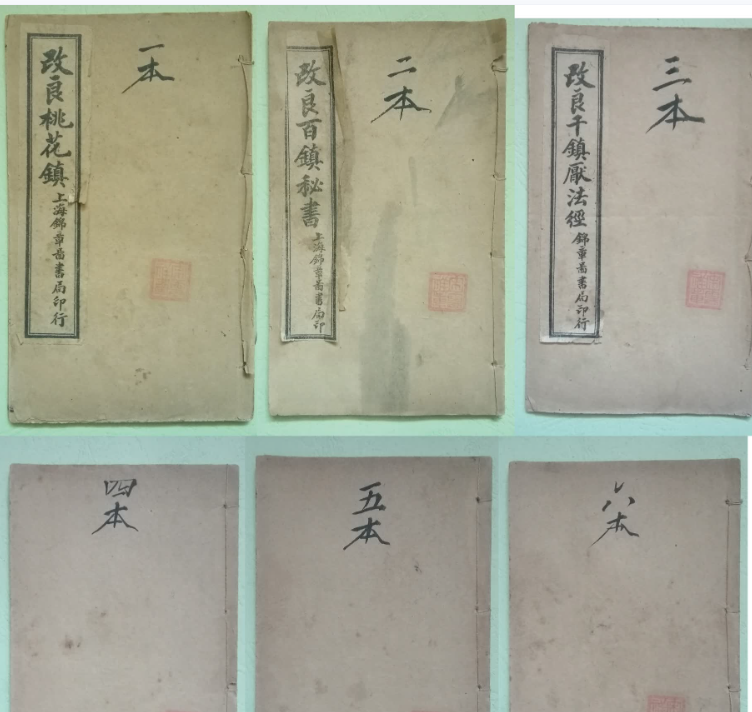 改良桃花鎮 上海錦章啚書局印行
一本
改良百鎮秘書 上海錦章啚書局印
二本
改良千鎮厭法經 錦章啚書局印行
三本
四本
五本
六本